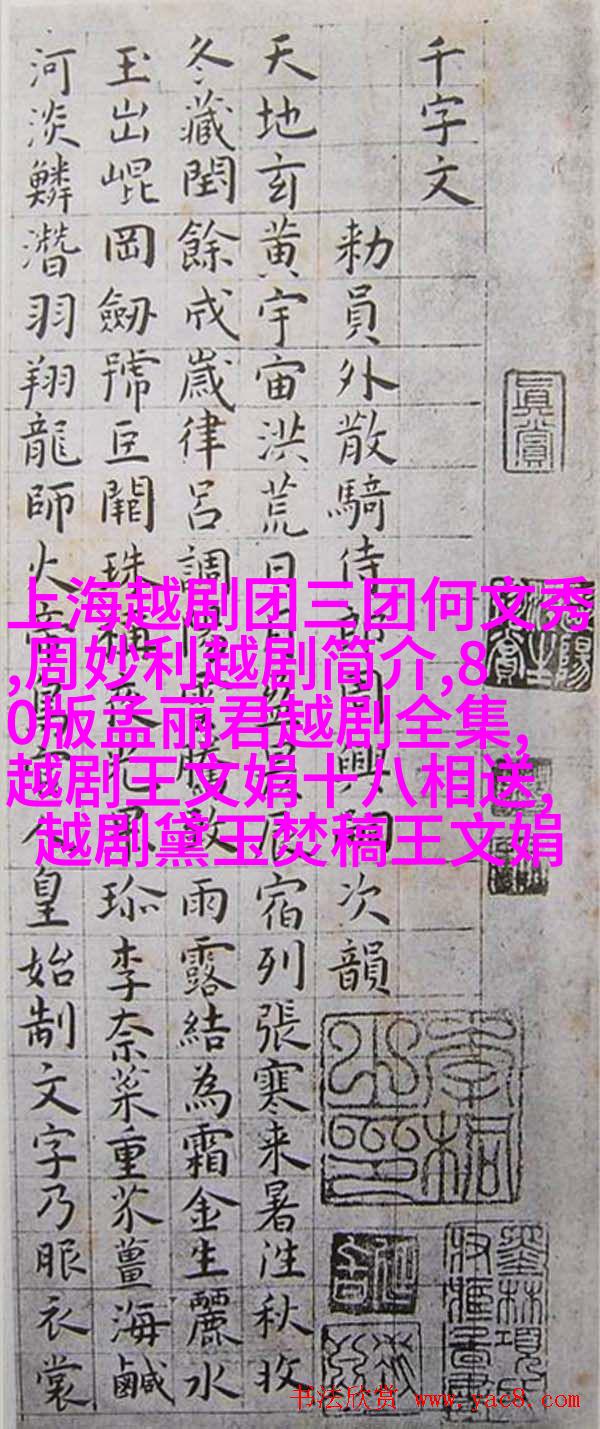 千字文
勑員外散騎侍郎周興嗣次韻
天地玄黃宇宙洪荒日月盈昃辰宿列張寒来暑往秋收
冬藏閏餘成歲律呂調陽雲騰致雨露結為霜金生麗水
玉出崐岡劒號巨闕珠稱夜光菓珎李柰菜重芥薑海鹹
河淡鱗潛羽翔龍師火帝鳥官人皇始制文字乃服衣裳
真賞
上海越剧团三团何文秀
,周妙利越剧简介,8
0版孟丽君越剧全集,
越剧王文娟十八相送,
越剧黛玉焚稿王文娟
书法欣赏 www.yac8.com